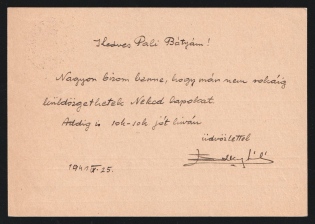 Kedves Pali Bátyám!
Nagyon bízom benne, hogy már nem sokáig
küldözgethetek Neked lapokat.
Addig is sok-sok jót kíván
üdvözlettel
1941 IX. 25.